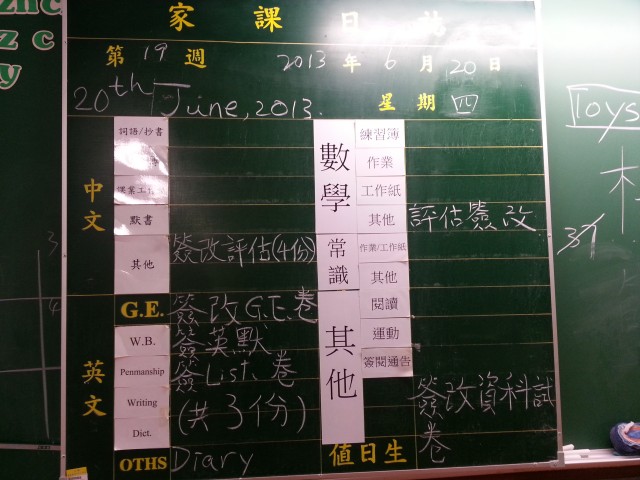 家課日誌
第19週 2013年6月20日
20th June, 2013.
星期四
中文
詞語/抄書
默書
其他
簽改評估(4份)
G.E.
簽改G.E.卷
英文
W.B.
簽英默
Penmanship
簽List.卷
Writing
(共3份)
Dict.
OTHS
Diary
數學
練習簿
作業
工作紙
其他
評估簽改
常識
作業/工作紙
其他
其他
閱讀
運動
簽閱通告
簽改資科試卷
值日生
Toys